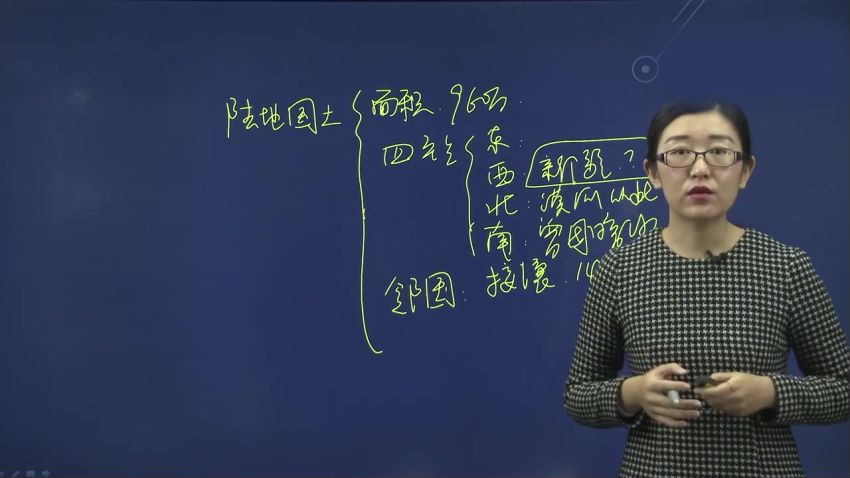 陆地国土
面积. 960万.
四至
东:
西: 新疆?
北: 漠河以北
南: 曾母暗沙
邻国: 接壤. 14